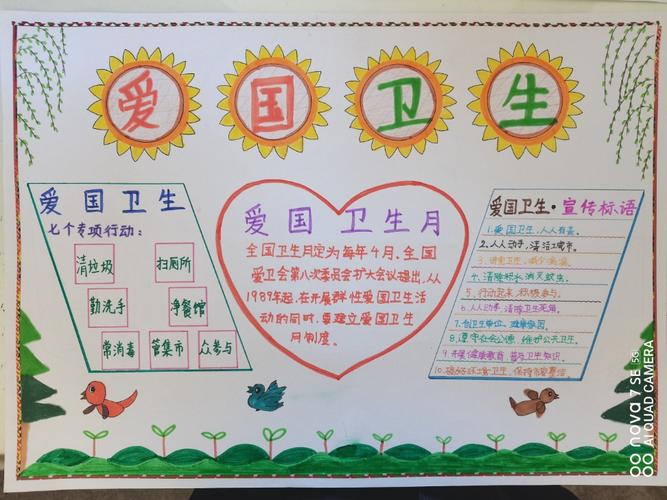 爱国卫生
爱国卫生
七个专项行动:
清垃圾 扫厕所
勤洗手 净餐馆
常消毒 管集市 众参与
爱国卫生月
全国卫生月定为每年4月,全国
爱卫会第八次委员会扩大会议提出,从
1989年起,在开展群性爱国卫生活
动的同时,要建立爱国卫生
月制度。
爱国卫生·宣传标语
1.爱国卫生,人人有责。
2.人人动手,清洁城市。
3.讲究卫生,减少疾病。
4.清除积水,消灭蚊虫。
5.行动起来,积极参与。
6.人人动手,清除卫生死角。
7.创卫生单位,建健康校园。
8.遵守社会公德,维护公共卫生。
9.开展健康教育,普及卫生知识。
10.搞好环境卫生,保持市容整洁。
nova 7 SE 5G
AI QUAD CAMERA